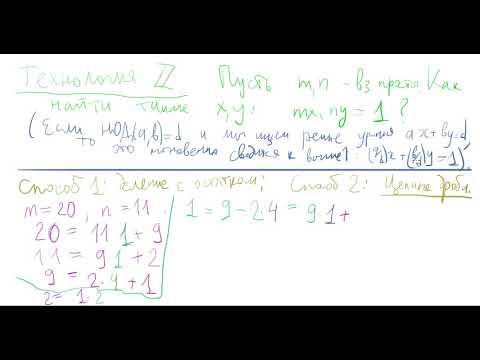 Технология ℤ Пусть m, n - вз прост. Как
найти такие x, y: mx + ny = 1 ?
( Если НОД(a,b)=d и мы ищем решие урния ax+by=d
то это мгновенно сводится к : (a/d)x + (b/d)y = 1 )
Способ 1: деление с остатком; Способ 2: Цепные дроби.
m=20, n=11
1 = 9 - 2·4 = 9 1 +
20 = 11 1 + 9
11 = 9 1 + 2
9 = 2·4 + 1
2 = 1·2